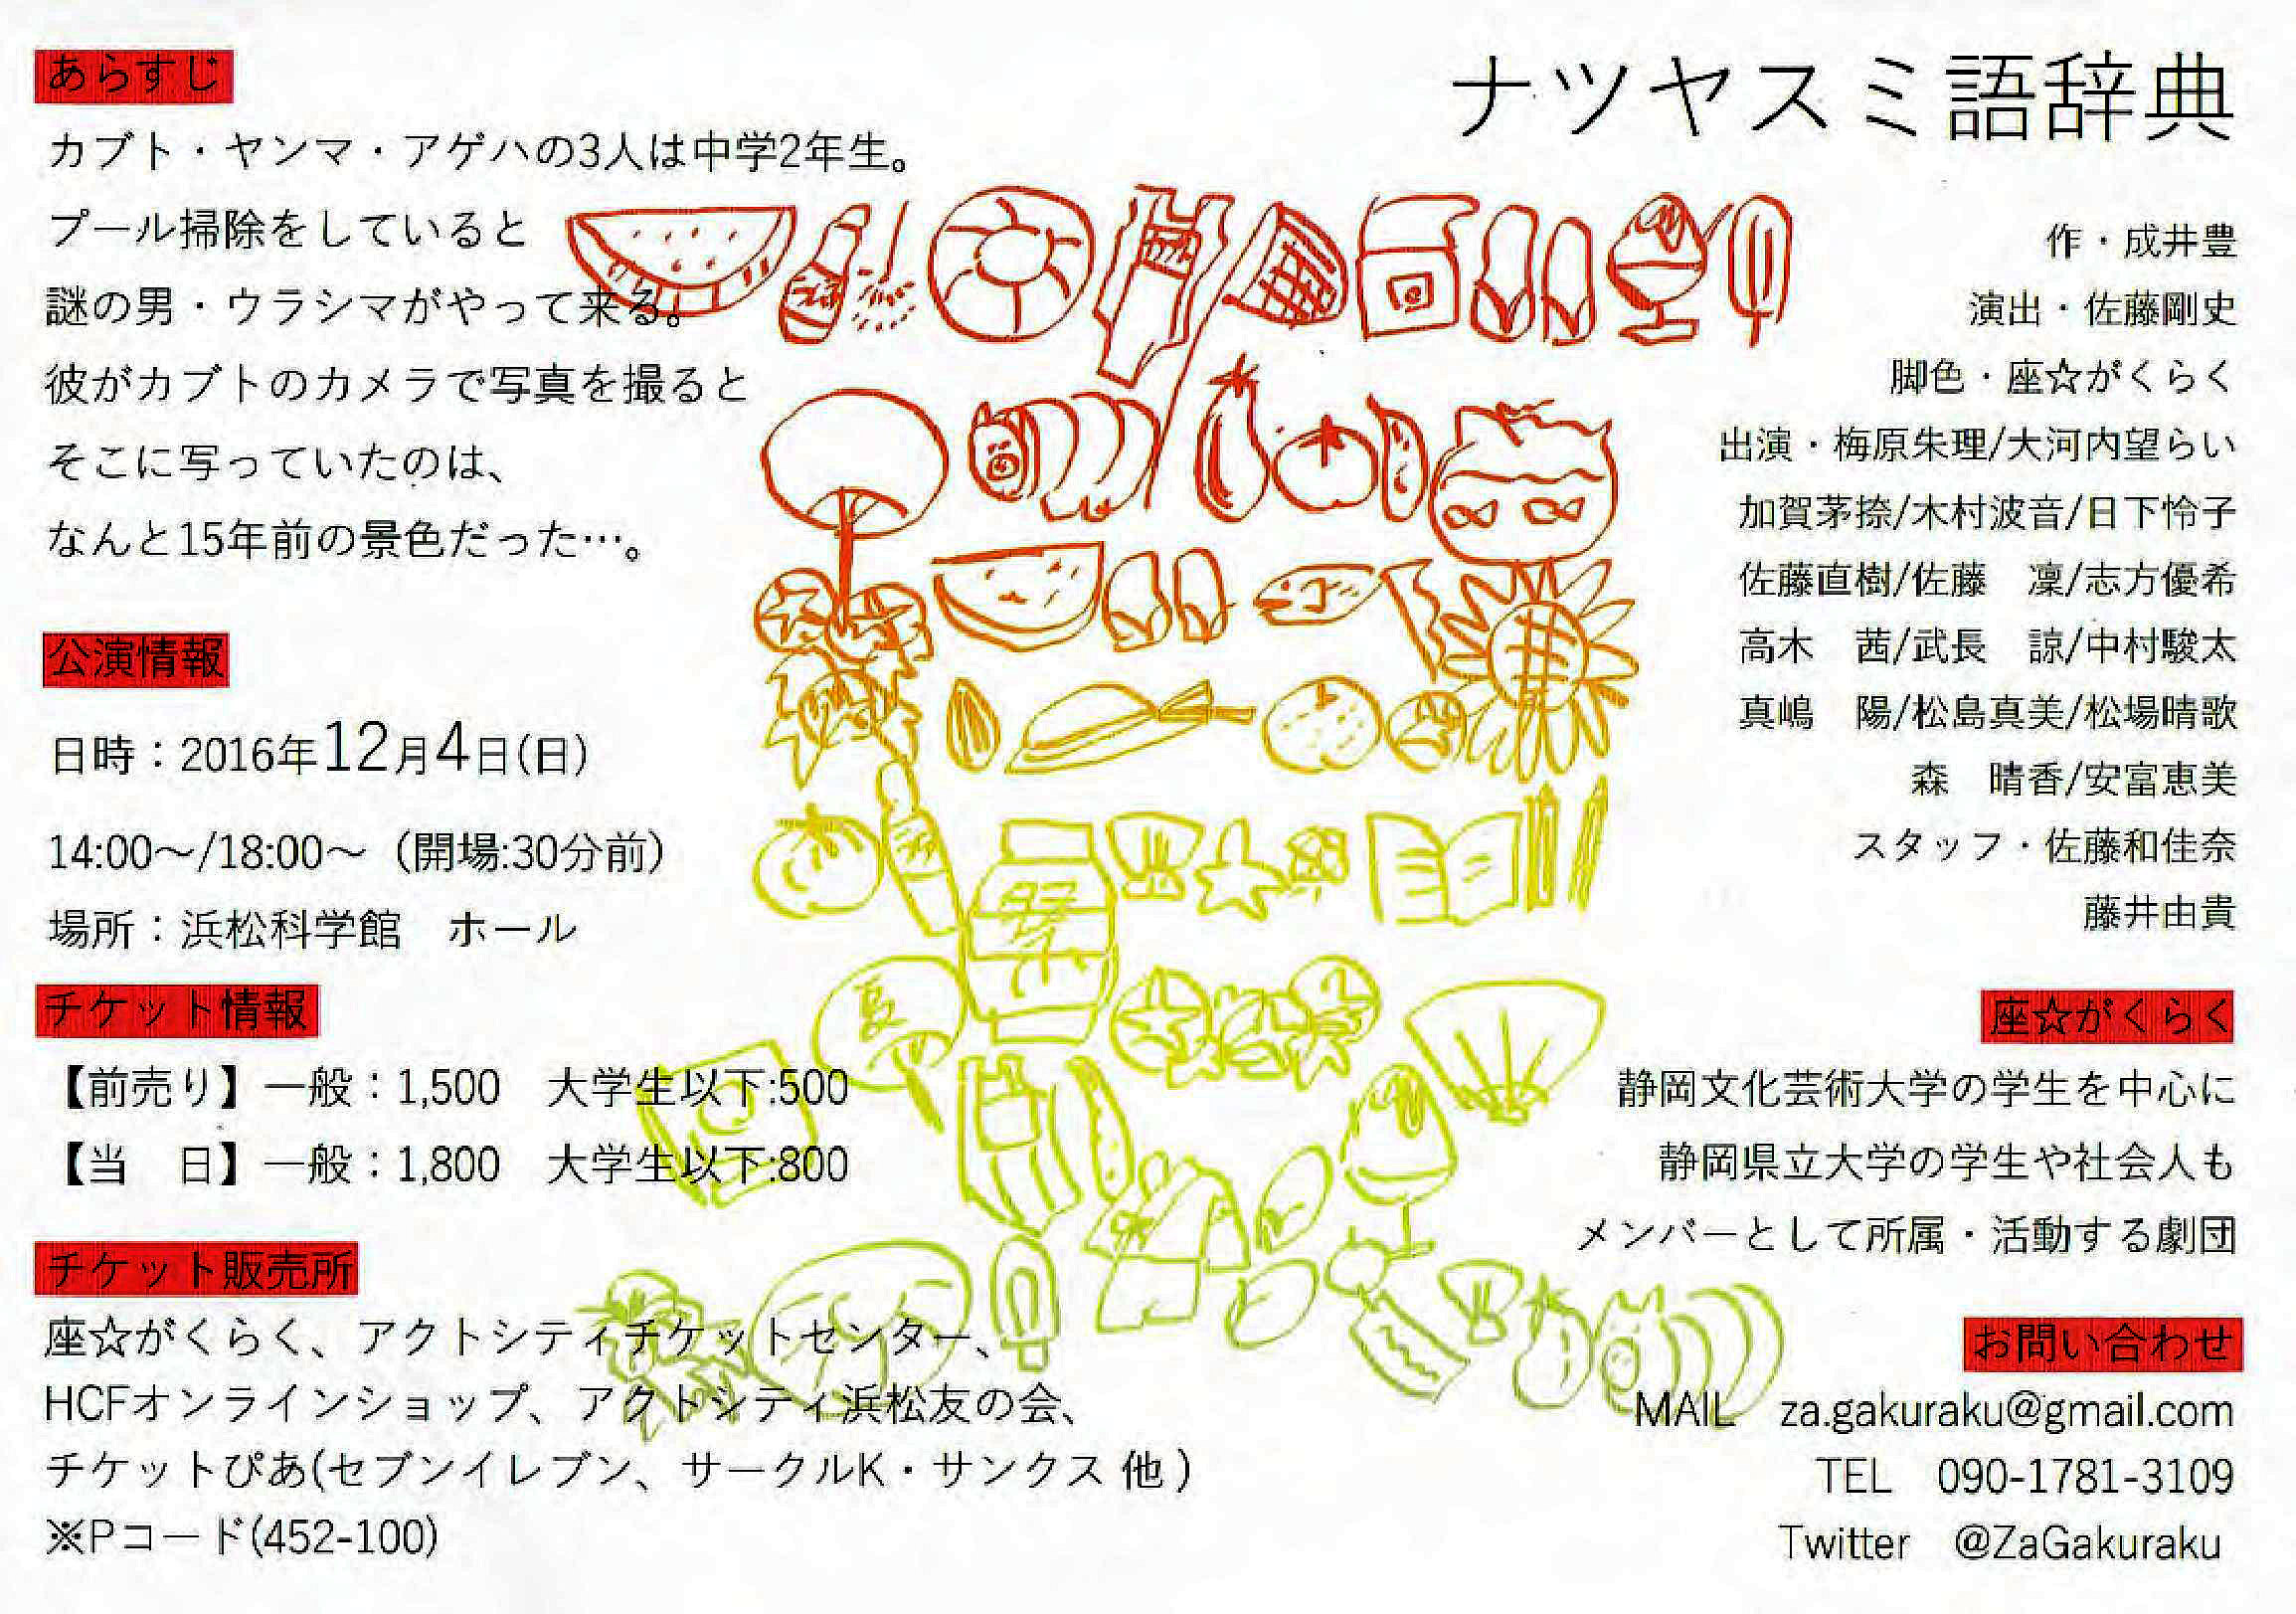 ナツヤスミ語辞典
あらすじ
カブト・ヤンマ・アゲハの3人は中学2年生。
プール掃除をしていると
謎の男・ウラシマがやって来る。
彼がカブトのカメラで写真を撮ると
そこに写っていたのは、
なんと15年前の景色だった…。
公演情報
日時：2016年12月4日(日)
14:00～/18:00～（開場:30分前）
場所：浜松科学館　ホール
チケット情報
【前売り】一般：1,500　大学生以下:500
【当　日】一般：1,800　大学生以下:800
チケット販売所
座☆がくらく、アクトシティチケットセンター、
HCFオンラインショップ、アクトシティ浜松友の会、
チケットぴあ(セブンイレブン、サークルK・サンクス 他 )
※Pコード(452-100)
作・成井豊
演出・佐藤剛史
脚色・座☆がくらく
出演・梅原朱理/大河内望らい
加賀茅捺/木村波音/日下怜子
佐藤直樹/佐藤　凜/志方優希
高木　茜/武長　諒/中村駿太
真嶋　陽/松島真美/松場晴歌
森　晴香/安富恵美
スタッフ・佐藤和佳奈
藤井由貴
座☆がくらく
静岡文化芸術大学の学生を中心に
静岡県立大学の学生や社会人も
メンバーとして所属・活動する劇団
お問い合わせ
MAIL　za.gakuraku@gmail.com
TEL　090-1781-3109
Twitter　@ZaGakuraku
祭
夏